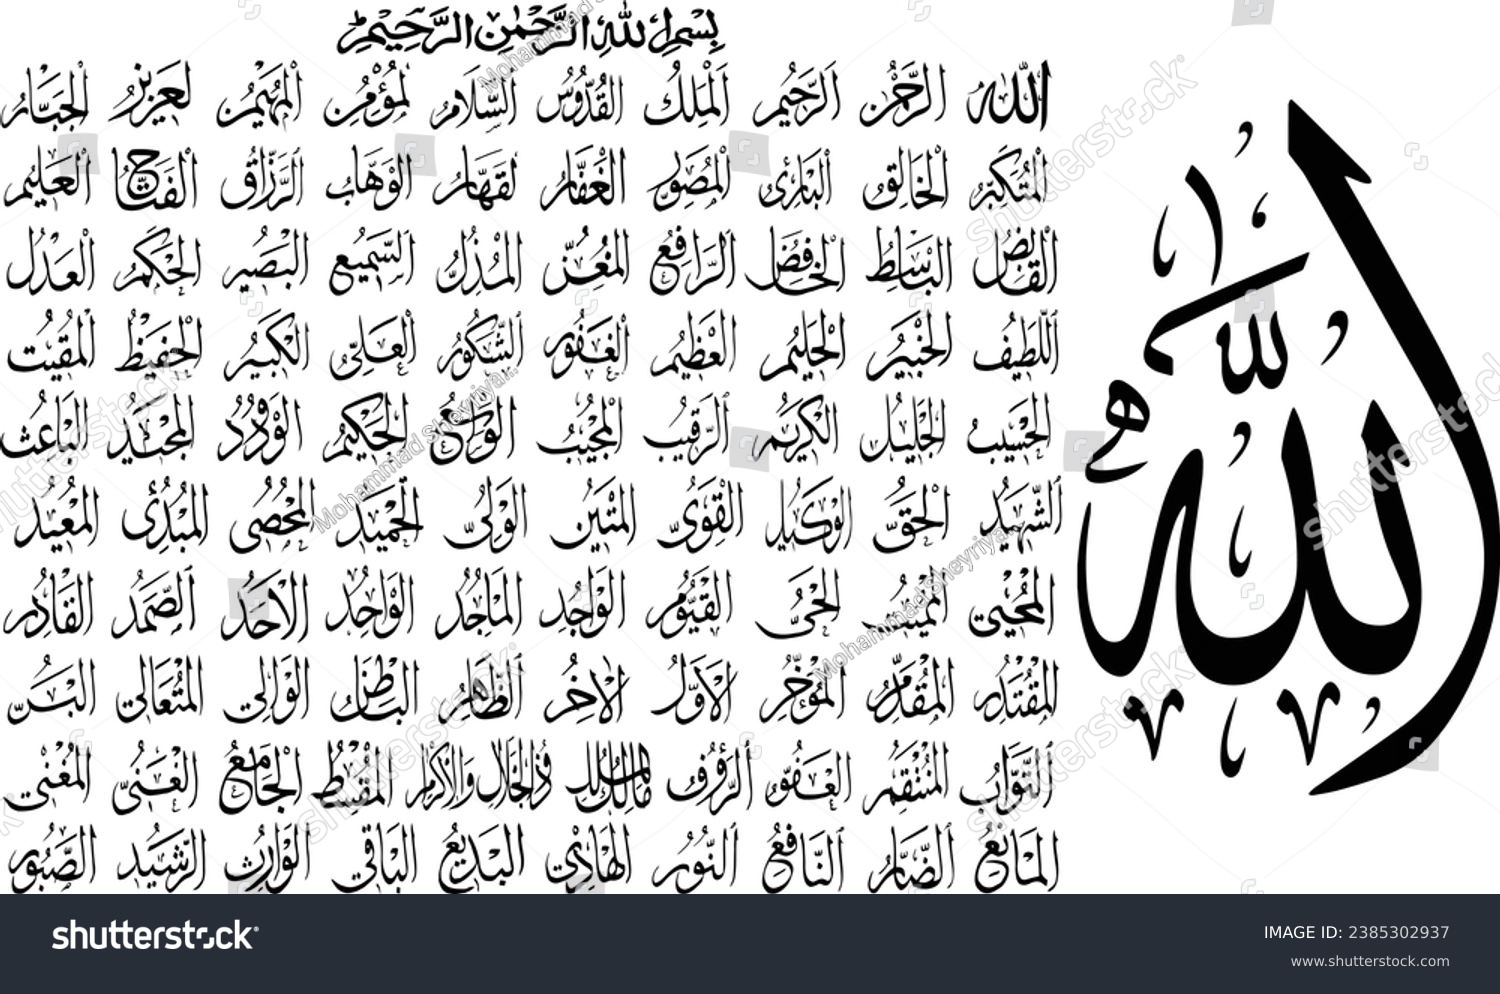 بِسْمِ اللهِ الرَّحْمٰنِ الرَّحِيْمِ
الله الرَّحْمٰنُ الرَّحِيْمُ الْمَلِكُ الْقُدُّوْسُ السَّلَامُ لْمُؤْمِنُ الْمُهَيْمِنُ لْعَزِيْزُ الْجَبَّارُ
الْمُتَكَبِّرُ الْخَالِقُ الْبَارِئُ الْمُصَوِّرُ الْغَفَّارُ لْقَهَّارُ الْوَهَّابُ الرَّزَّاقُ الْفَتَّاحُ الْعَلِيْمُ
الْقَابِضُ الْبَاسِطُ الْخَافِضُ الرَّافِعُ الْمُعِزُّ الْمُذِلُّ السَّمِيْعُ الْبَصِيْرُ الْحَكَمُ الْعَدْلُ
اللَّطِيْفُ الْخَبِيْرُ الْحَلِيْمُ الْعَظِيْمُ الْغَفُوْرُ الشَّكُوْرُ الْعَلِىُّ الْكَبِيْرُ الْحَفِيْظُ الْمُقِيْتُ
الْحَسِيْبُ الْجَلِيْلُ الْكَرِيْمُ الرَّقِيْبُ الْمُجِيْبُ الْوَاسِعُ الْحَكِيْمُ الْوَدُوْدُ الْمَجِيْدُ الْبَاعِثُ
الشَّهِيْدُ الْحَقُّ الْوَكِيْلُ الْقَوِىُّ الْمَتِيْنُ الْوَلِىُّ الْحَمِيْدُ الْمُحْصِى الْمُبْدِئُ الْمُعِيْدُ
الْمُحْيِى الْمُمِيْتُ الْحَىُّ الْقَيُّوْمُ الْوَاجِدُ الْمَاجِدُ الْوَاحِدُ الْاَحَدُ الصَّمَدُ الْقَادِرُ
الْمُقْتَدِرُ الْمُقَدِّمُ الْمُؤَخِّرُ الْاَوَّلُ الْاٰخِرُ الظَّاهِرُ الْبَاطِنُ الْوَالِى الْمُتَعَالِى الْبَرُّ
التَّوَّابُ الْمُنْتَقِمُ الْعَفُوُّ الرَّؤُوْفُ مَالِكُ الْمُلْكِ ذُوالْجَلَالِ وَالْاِكْرَامِ الْمُقْسِطُ الْجَامِعُ الْغَنِىُّ الْمُغْنِى
الْمَانِعُ الضَّارُّ النَّافِعُ النُّوْرُ الْهَادِى الْبَدِيْعُ الْبَاقِى الْوَارِثُ الرَّشِيْدُ الصَّبُوْرُ
الله
shutterstock
IMAGE ID: 2385302937
www.shutterstock.com
Mohammad Sheyriyar